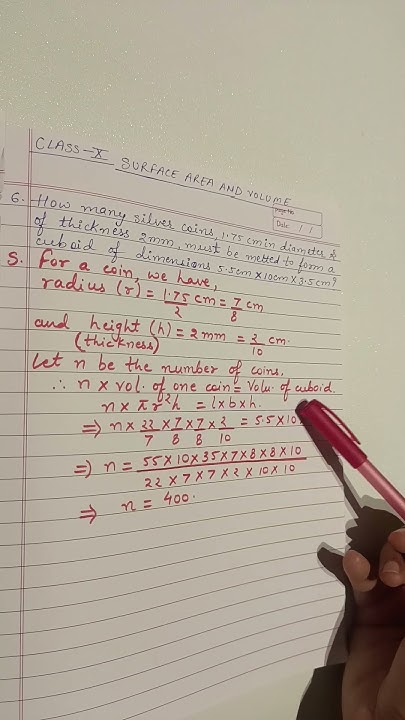 CLASS-X
SURFACE AREA AND VOLUME
Page No.
Date: / /
6. How many silver coins, 1.75 cm in diameter &
of thickness 2mm, must be melted to form a
cuboid of dimensions 5.5cm×10cm×3.5cm?
S. For a coin, we have,
radius (r) = 1.75/2 cm = 7/8 cm
and height (h) = 2 mm = 2/10 cm.
(thickness)
Let n be the number of coins.
∴ n × vol. of one coin = Volu. of cuboid.
n × πr²h = l×b×h.
⇒ n × 22/7 × 7/8 × 7/8 × 2/10 = 5.5×10×
⇒ n = 55×10×35×7×8×8×10 / 22×7×7×2×10×10
⇒ n = 400.